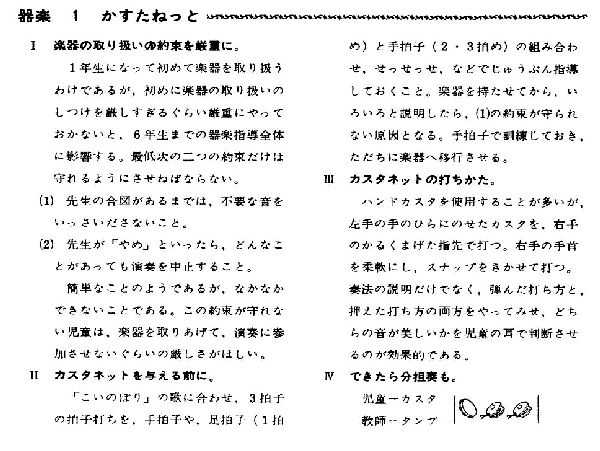 器楽 1 かすたねっと
I 楽器の取り扱いの約束を厳重に。
1年生になって初めて楽器を取り扱う
わけであるが、初めに楽器の取り扱いの
しつけを厳しすぎるぐらい厳重にやって
おかないと、6年生までの器楽指導全体
に影響する。最低次の二つの約束だけは
守れるようにさせねばならない。
(1) 先生の合図があるまでは、不要な音を
いっさいださないこと。
(2) 先生が「やめ」といったら、どんなこ
とがあっても演奏を中止すること。
簡単なことのようであるが、なかなか
できないことである。この約束が守れな
い児童は、楽器を取りあげて、演奏に参
加させないぐらいの厳しさがほしい。
II カスタネットを与える前に。
「こいのぼり」の歌に合わせ、3拍子
の拍子打ちを、手拍子や、足拍子(1拍
め)と手拍子(2・3拍め)の組み合わ
せ、せっせっせ、などでじゅうぶん指導
しておくこと。楽器を持たせてから、い
ろいろと説明したら、(1)の約束が守られ
ない原因となる。手拍子で訓練しておき、
ただちに楽器へ移行させる。
III カスタネットの打ちかた。
ハンドカスタを使用することが多いが、
左手の手のひらにのせたカスタを、右手
のかるくまげた指先で打つ。右手の手首
を柔軟にし、スナップをきかせて打つ。
奏法の説明だけでなく、弾んだ打ち方と、
押えた打ち方の両方をやってみせ、どち
らの音が美しいかを児童の耳で判断させ
るのが効果的である。
IV できたら分担奏も。
児童ーカスタ
教師ータンブ